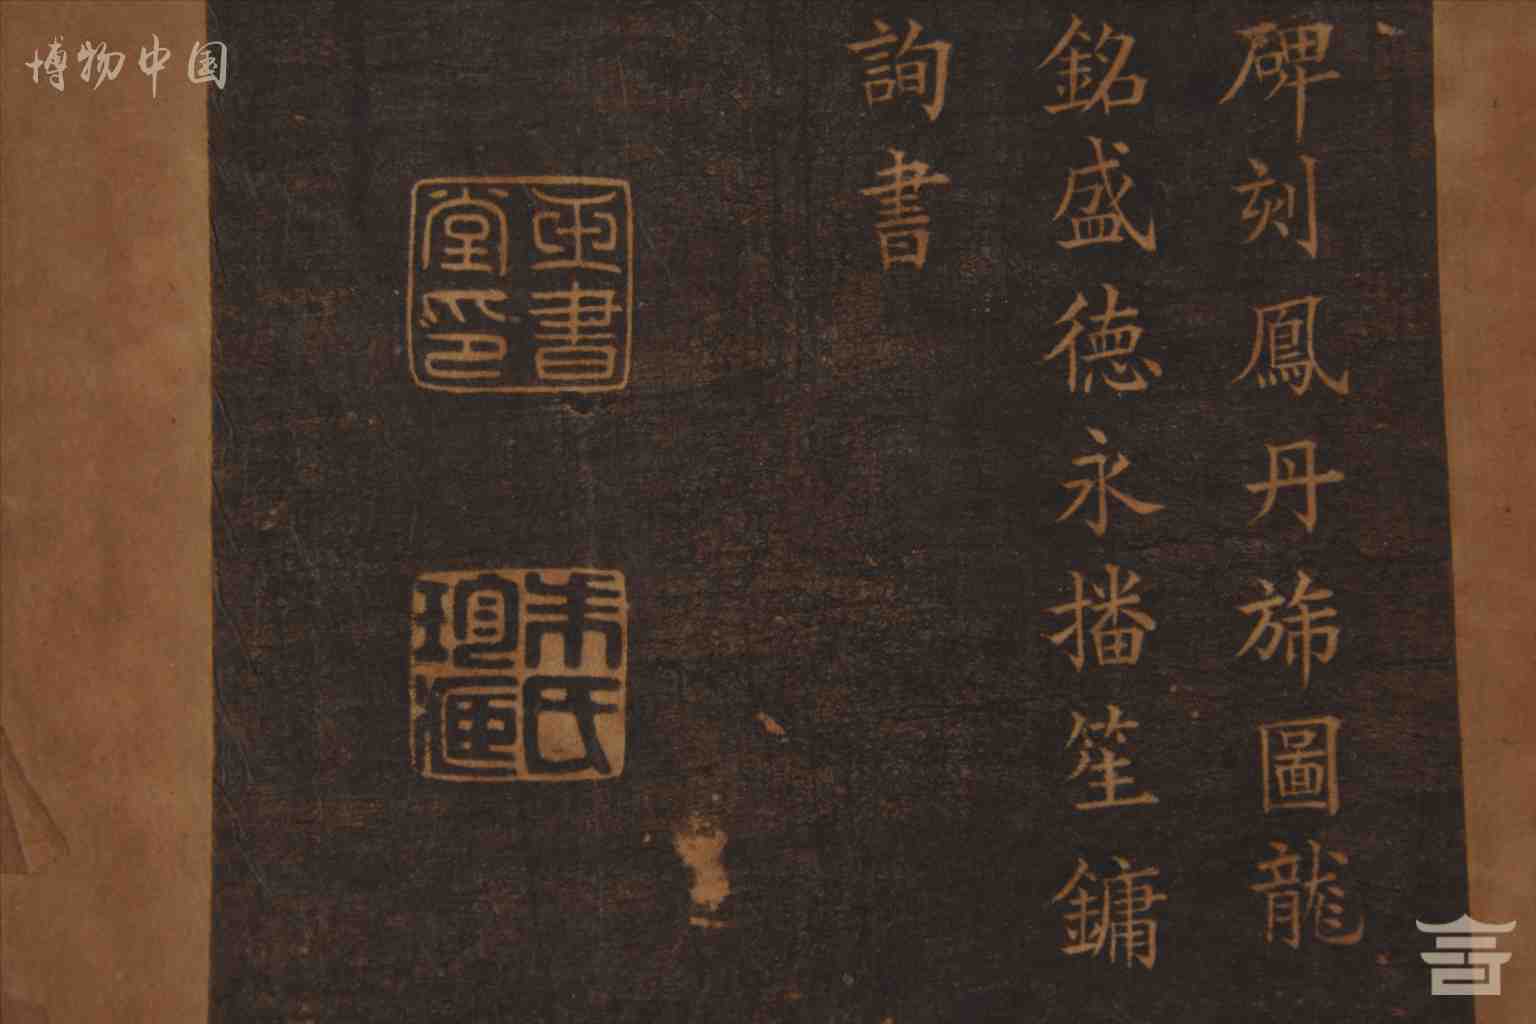 碑刻鳳丹斾圖龍
銘盛德永播笙鏞
詢書
玉書堂印
朱氏
博物中国